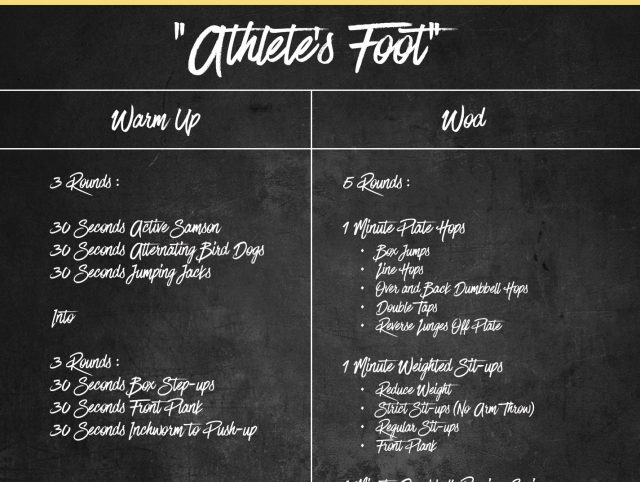 "Athlete's Foot"
Warm Up
3 Rounds :
30 Seconds Active Samson
30 Seconds Alternating Bird Dogs
30 Seconds Jumping Jacks
Into
3 Rounds :
30 Seconds Box Step-ups
30 Seconds Front Plank
30 Seconds Inchworm to Push-up
Wod
5 Rounds :
1 Minute Plate Hops
• Box Jumps
• Line Hops
• Over and Back Dumbbell Hops
• Double Taps
• Reverse Lunges Off Plate
1 Minute Weighted Sit-ups
• Reduce Weight
• Strict Sit-ups (No Arm Throw)
• Regular Sit-ups
• Front Plank